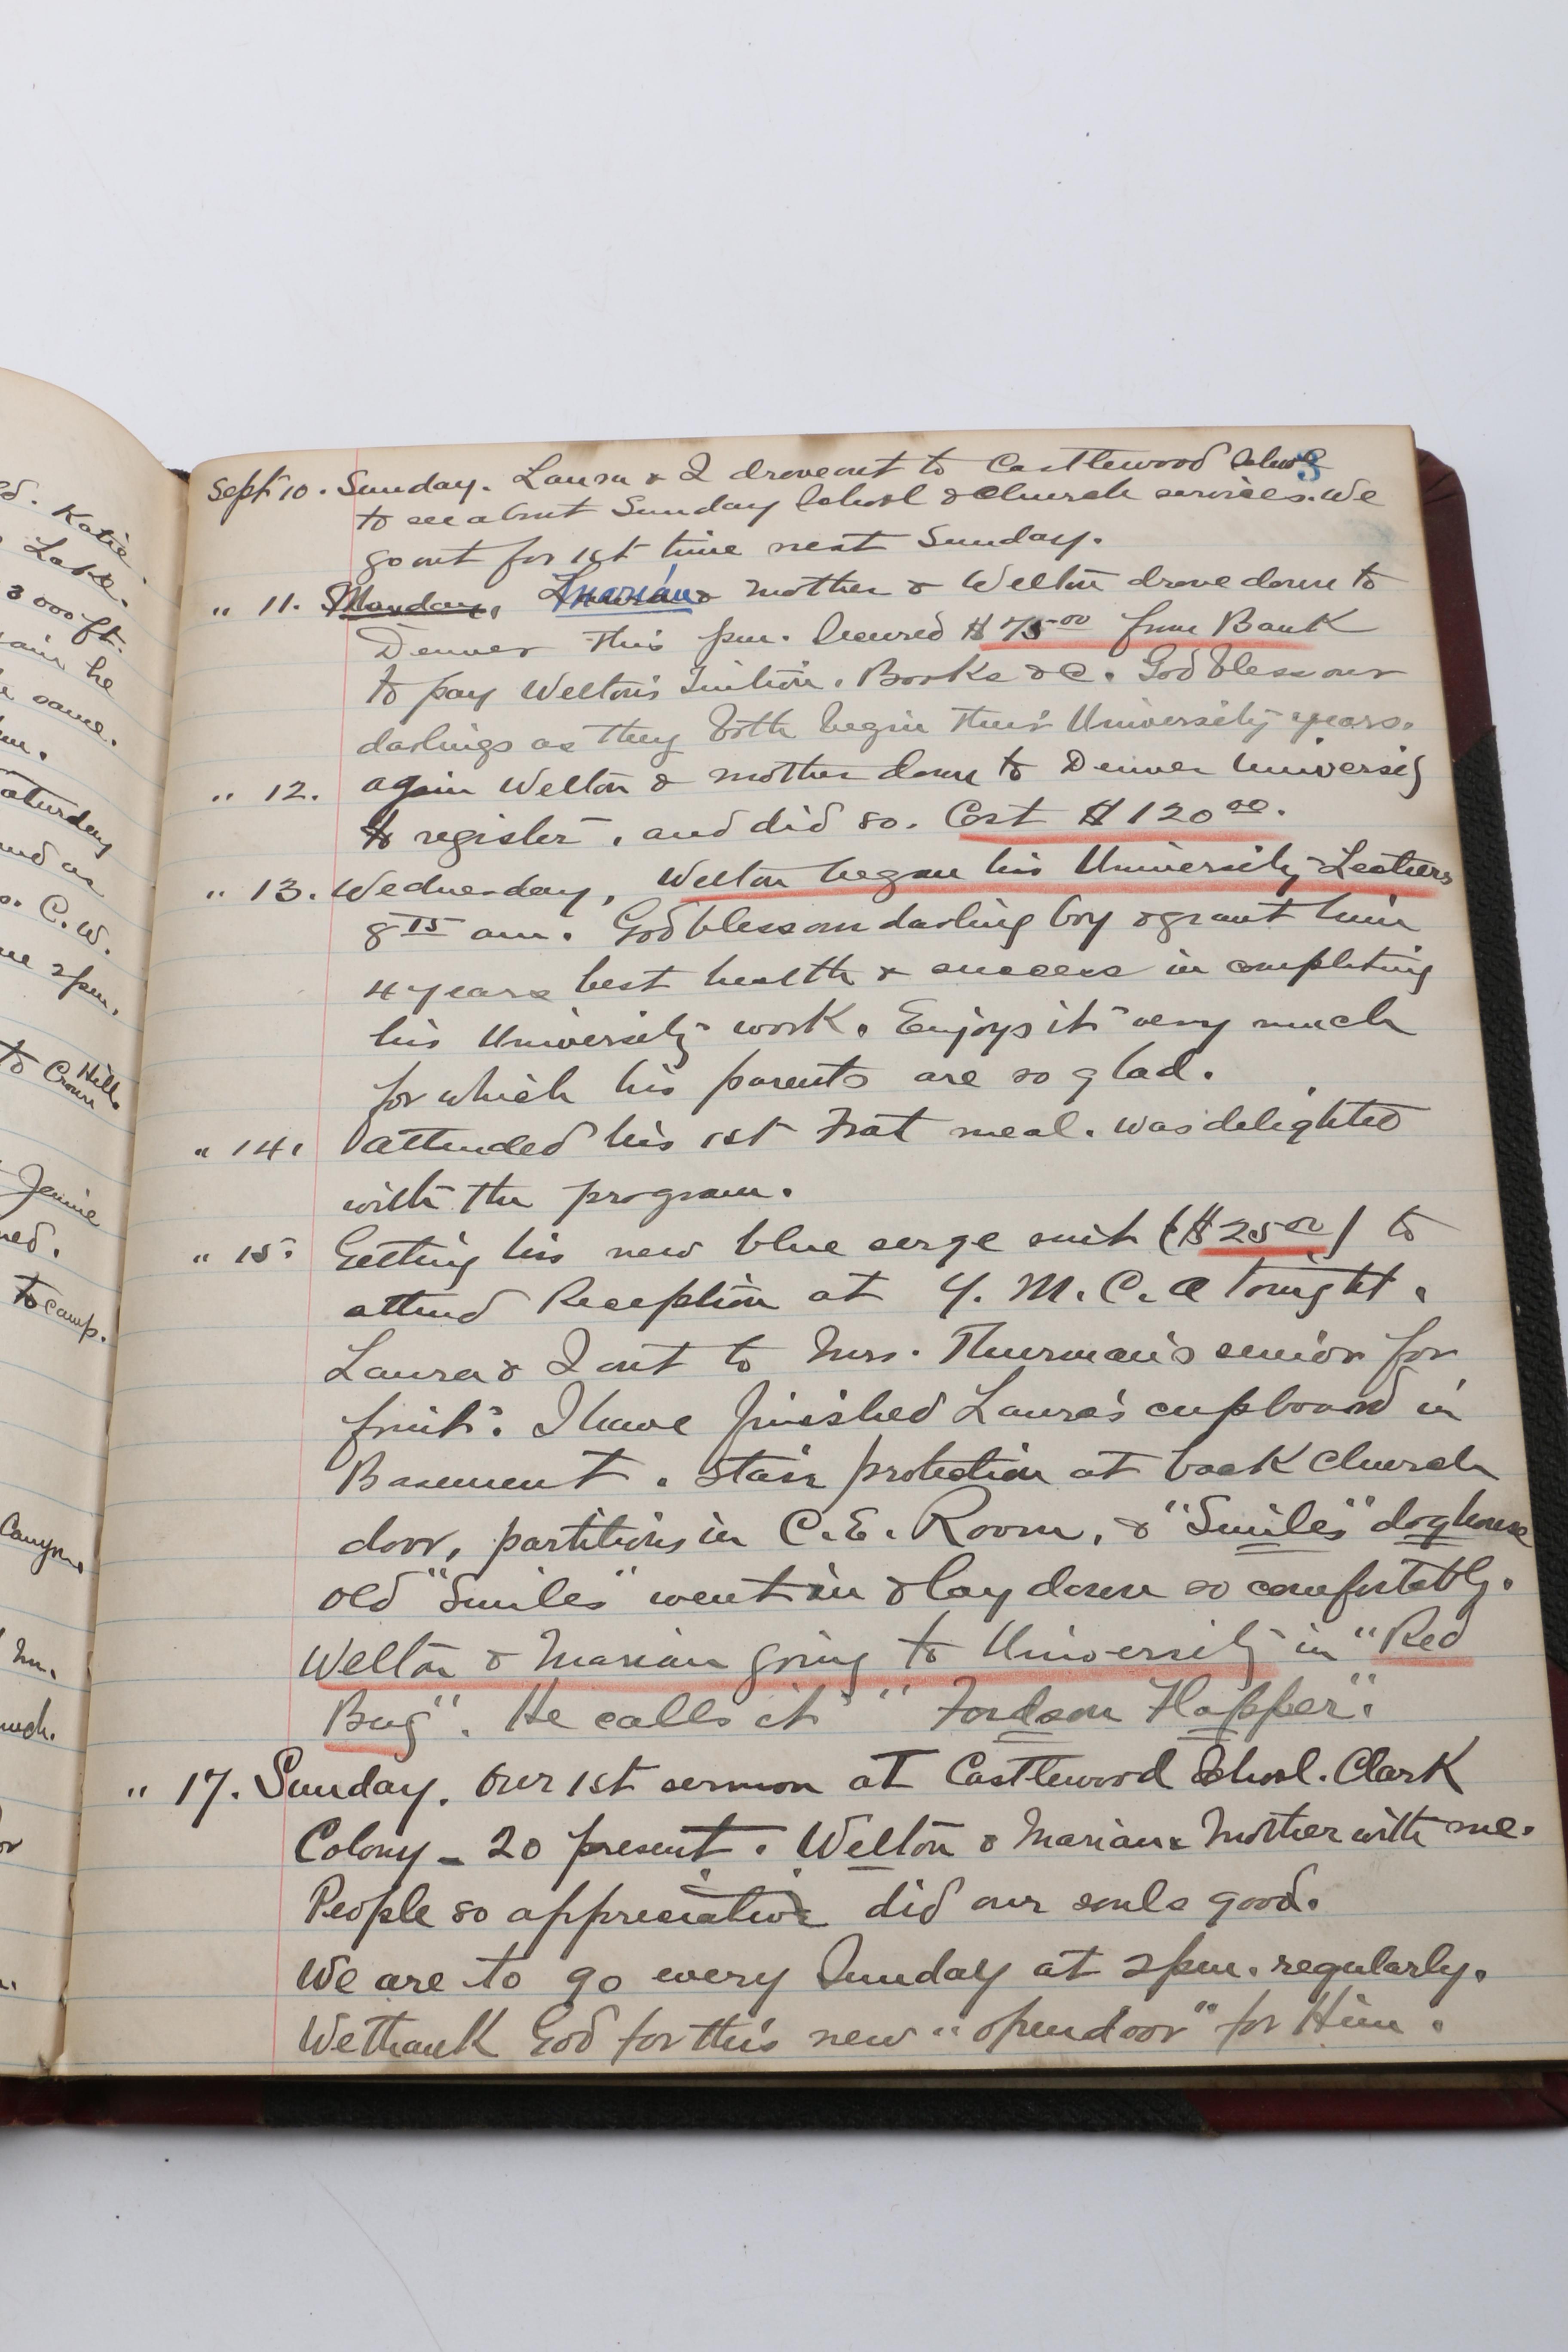 ed. Katie.
Lake.
3000 ft.
he
same.
Saturday
and as
C.W.
2 pm.
to Crown Hill.
Jennie
ed.
to camp.
Canyon
3
Sept 10. Sunday. Laura & I drove out to Castlewood School
to see about Sunday School & Church services. We
go out for 1st time next Sunday.
" 11. Monday. Marian & Mother & Welton drove down to
Denver this pm. Secured $75.00 from Bank
to pay Welton's Tuition. Books &c. God bless our
darlings as they both begin their University years.
" 12. again Welton & Mother down to Denver University
to register, and did so. Cost $120.00.
" 13. Wednesday, Welton began his University Lectures
8 15 am. God bless our darling boy & grant him
4 years best health & success in completing
his University work. Enjoys it very much
for which his parents are so glad.
" 14. attended his 1st Frat meal. was delighted
with the program.
" 15. Getting his new blue serge suit ($25.00) to
attend Reception at Y.M.C.A tonight.
Laura & I out to Mrs. Thurman's senior for
fruit. I have finished Laura's cupboard in
Basement. Stair protection at back Church
door, partitions in C.E. Room, & "Smiles" doghouse
old "Smiles" went in & lay down so comfortably.
Welton & Marian going to University in "Red
Bug". He calls it "Fordson Flapper".
" 17. Sunday. Our 1st sermon at Castlewood School. Clark
Colony - 20 present. Welton & Marian & Mother with me.
People so appreciative did our souls good.
We are to go every Sunday at 2 pm. regularly.
We thank God for this new "open door" for Him.